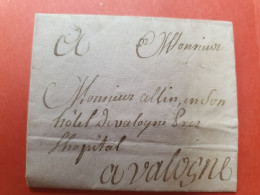 A Monsieur
Monsieur allin, en Son
hôtel de valogne Pres
lhopital
a valogne